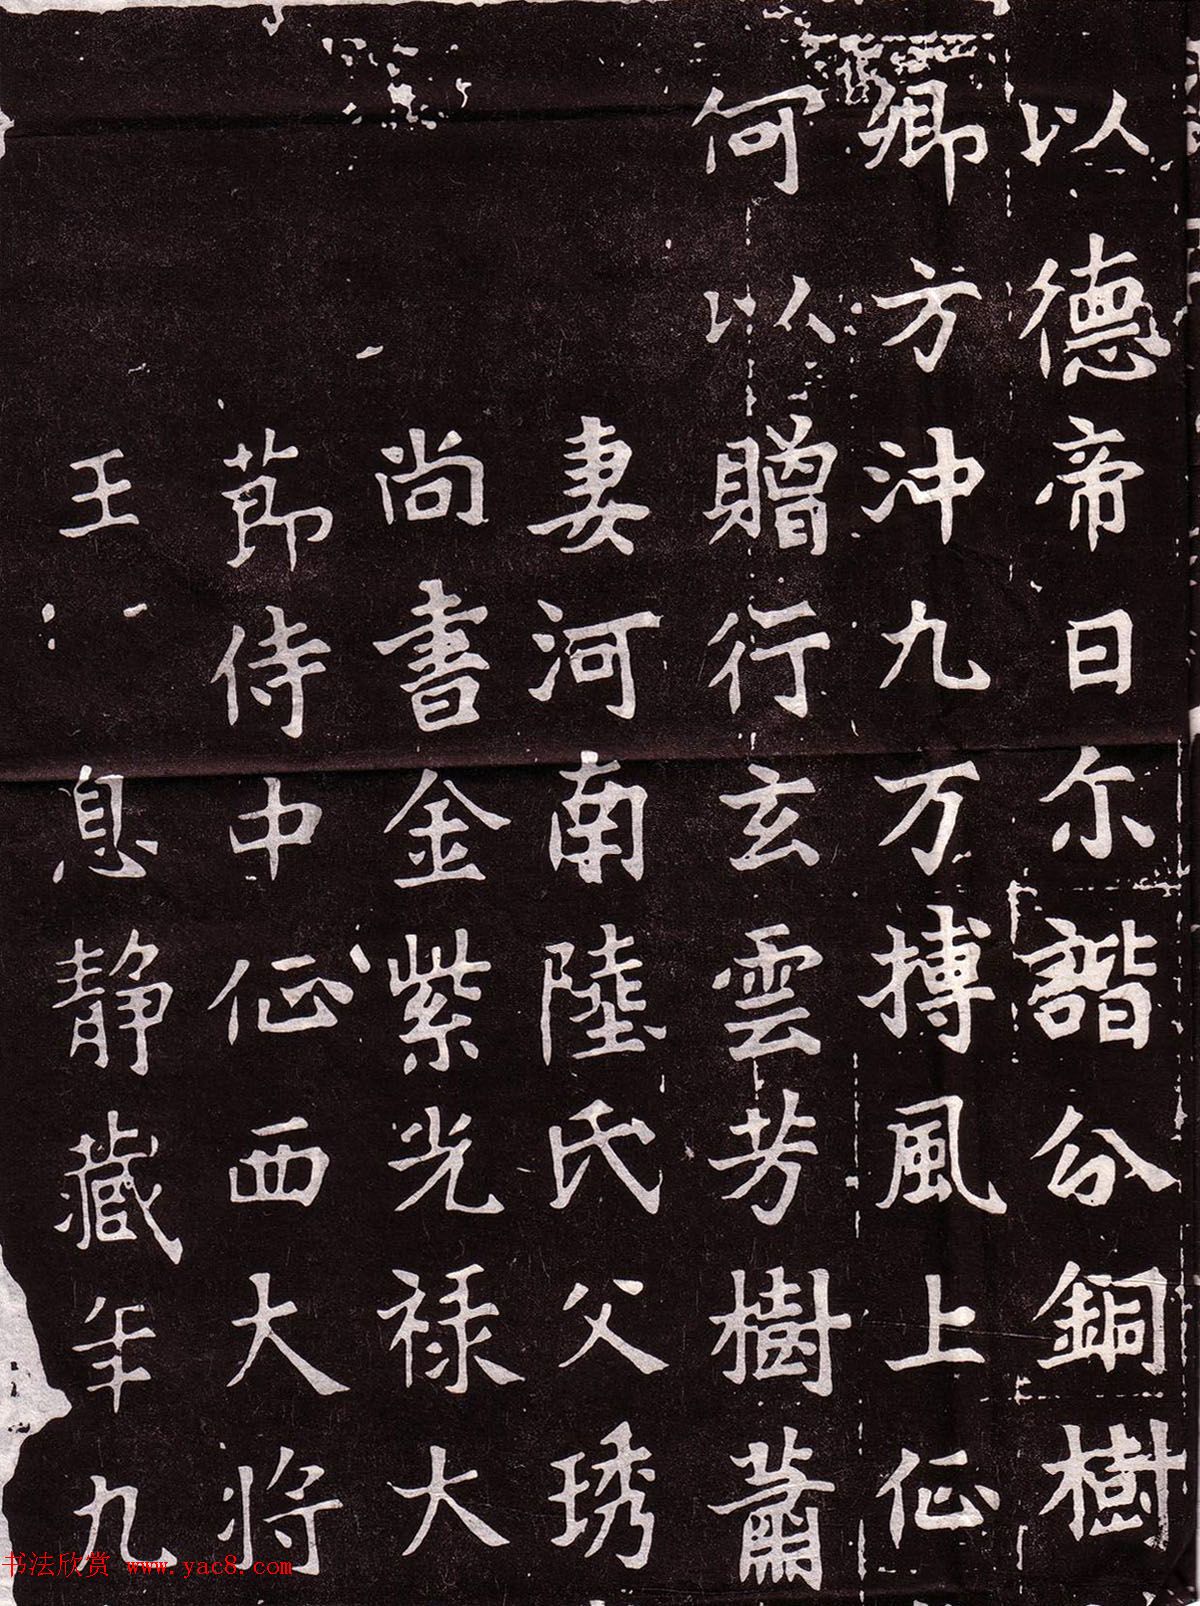 以德帝曰尓諧分銅樹
卿方沖九万搏風上仙
何以贈行玄雲芳樹蕭
妻河南陸氏父琇
尚書金紫光祿大
節侍中仙西大將
王息靜藏年九
书法欣赏 www.yac8.com